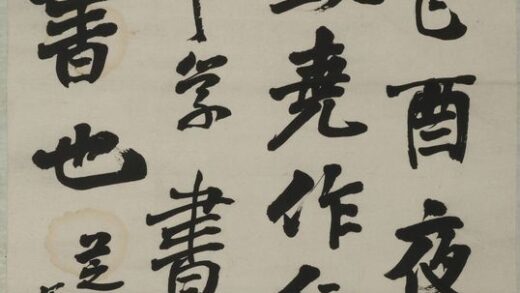 酉夜
堯作
学書
書也
芝